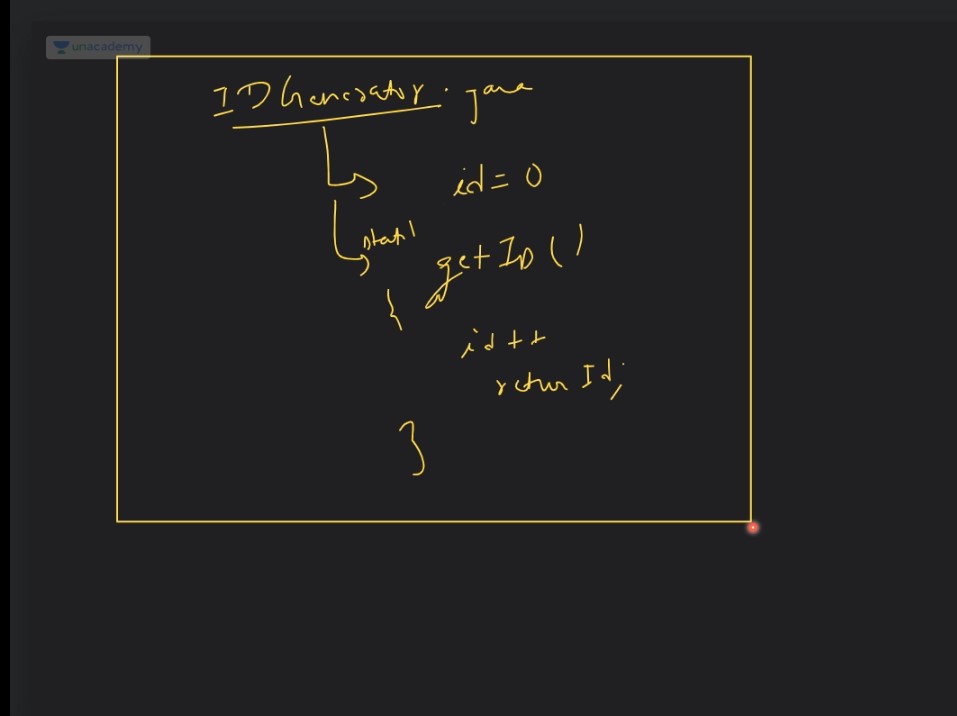 unacademy
IDGenerator.java
id = 0
static
getID()
{
id++
return Id;
}